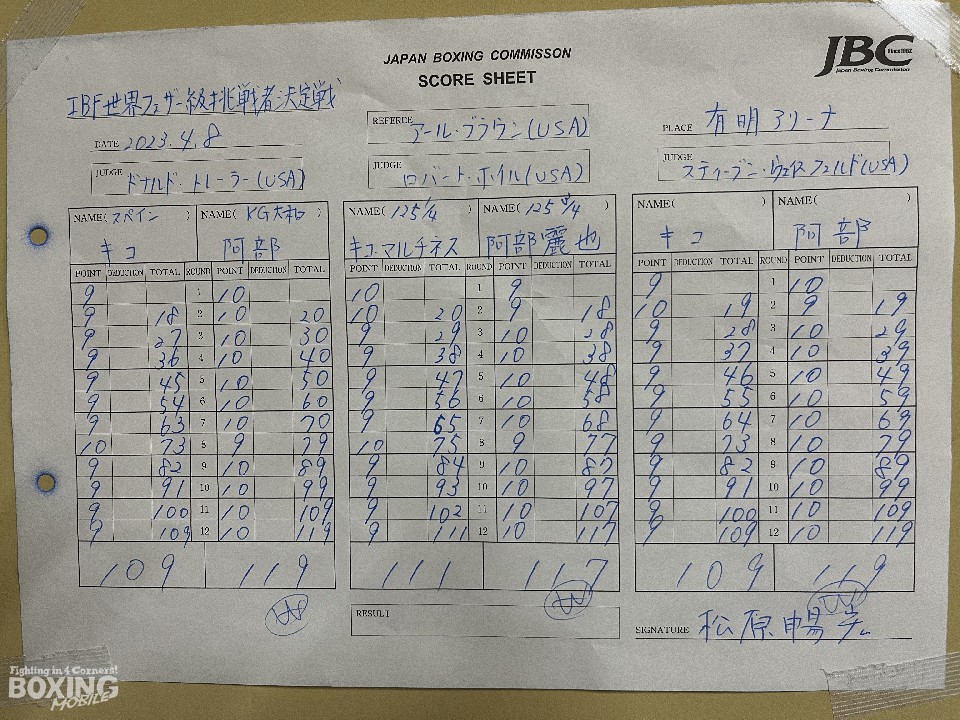 JAPAN BOXING COMMISSON
SCORE SHEET
JBC Since1952
Japan Boxing Commission
IBF世界フェザー級挑戦者決定戦
DATE 2023.4.8
REFEREE アール・ブラウン(USA)
PLACE 有明アリーナ
JUDGE ドナルド・トレーラー(USA)
JUDGE ロバート・ホイル(USA)
JUDGE スティーブン・ウェイスフェルド(USA)
NAME(スペイン) NAME(KG大和) NAME(125 1/4) NAME(125 3/4) NAME( ) NAME( )
キコ 阿部 キコ・マルチネス 阿部麗也 キコ 阿部
POINT DEDUCTION TOTAL ROUND POINT DEDUCTION TOTAL POINT DEDUCTION TOTAL ROUND POINT DEDUCTION TOTAL POINT DEDUCTION TOTAL ROUND POINT DEDUCTION TOTAL
9 1 10 10 1 9 9 1 10
9 18 2 10 20 10 20 2 9 18 10 19 2 9 19
9 27 3 10 30 9 29 3 10 28 9 28 3 10 29
9 36 4 10 40 9 38 4 10 38 9 37 4 10 39
9 45 5 10 50 9 47 5 10 48 9 46 5 10 49
9 54 6 10 60 9 56 6 10 58 9 55 6 10 59
9 63 7 10 70 9 65 7 10 68 9 64 7 10 69
10 73 8 9 79 10 75 8 9 77 9 73 8 10 79
9 82 9 10 89 9 84 9 10 87 9 82 9 10 89
9 91 10 10 99 9 93 10 10 97 9 91 10 10 99
9 100 11 10 109 9 102 11 10 107 9 100 11 10 109
9 109 12 10 119 9 111 12 10 117 9 109 12 10 119
109 119 111 117 109 119
RESULT
SIGNATURE 松原暢
Fighting in 4 Corners!
BOXING
MOBILE